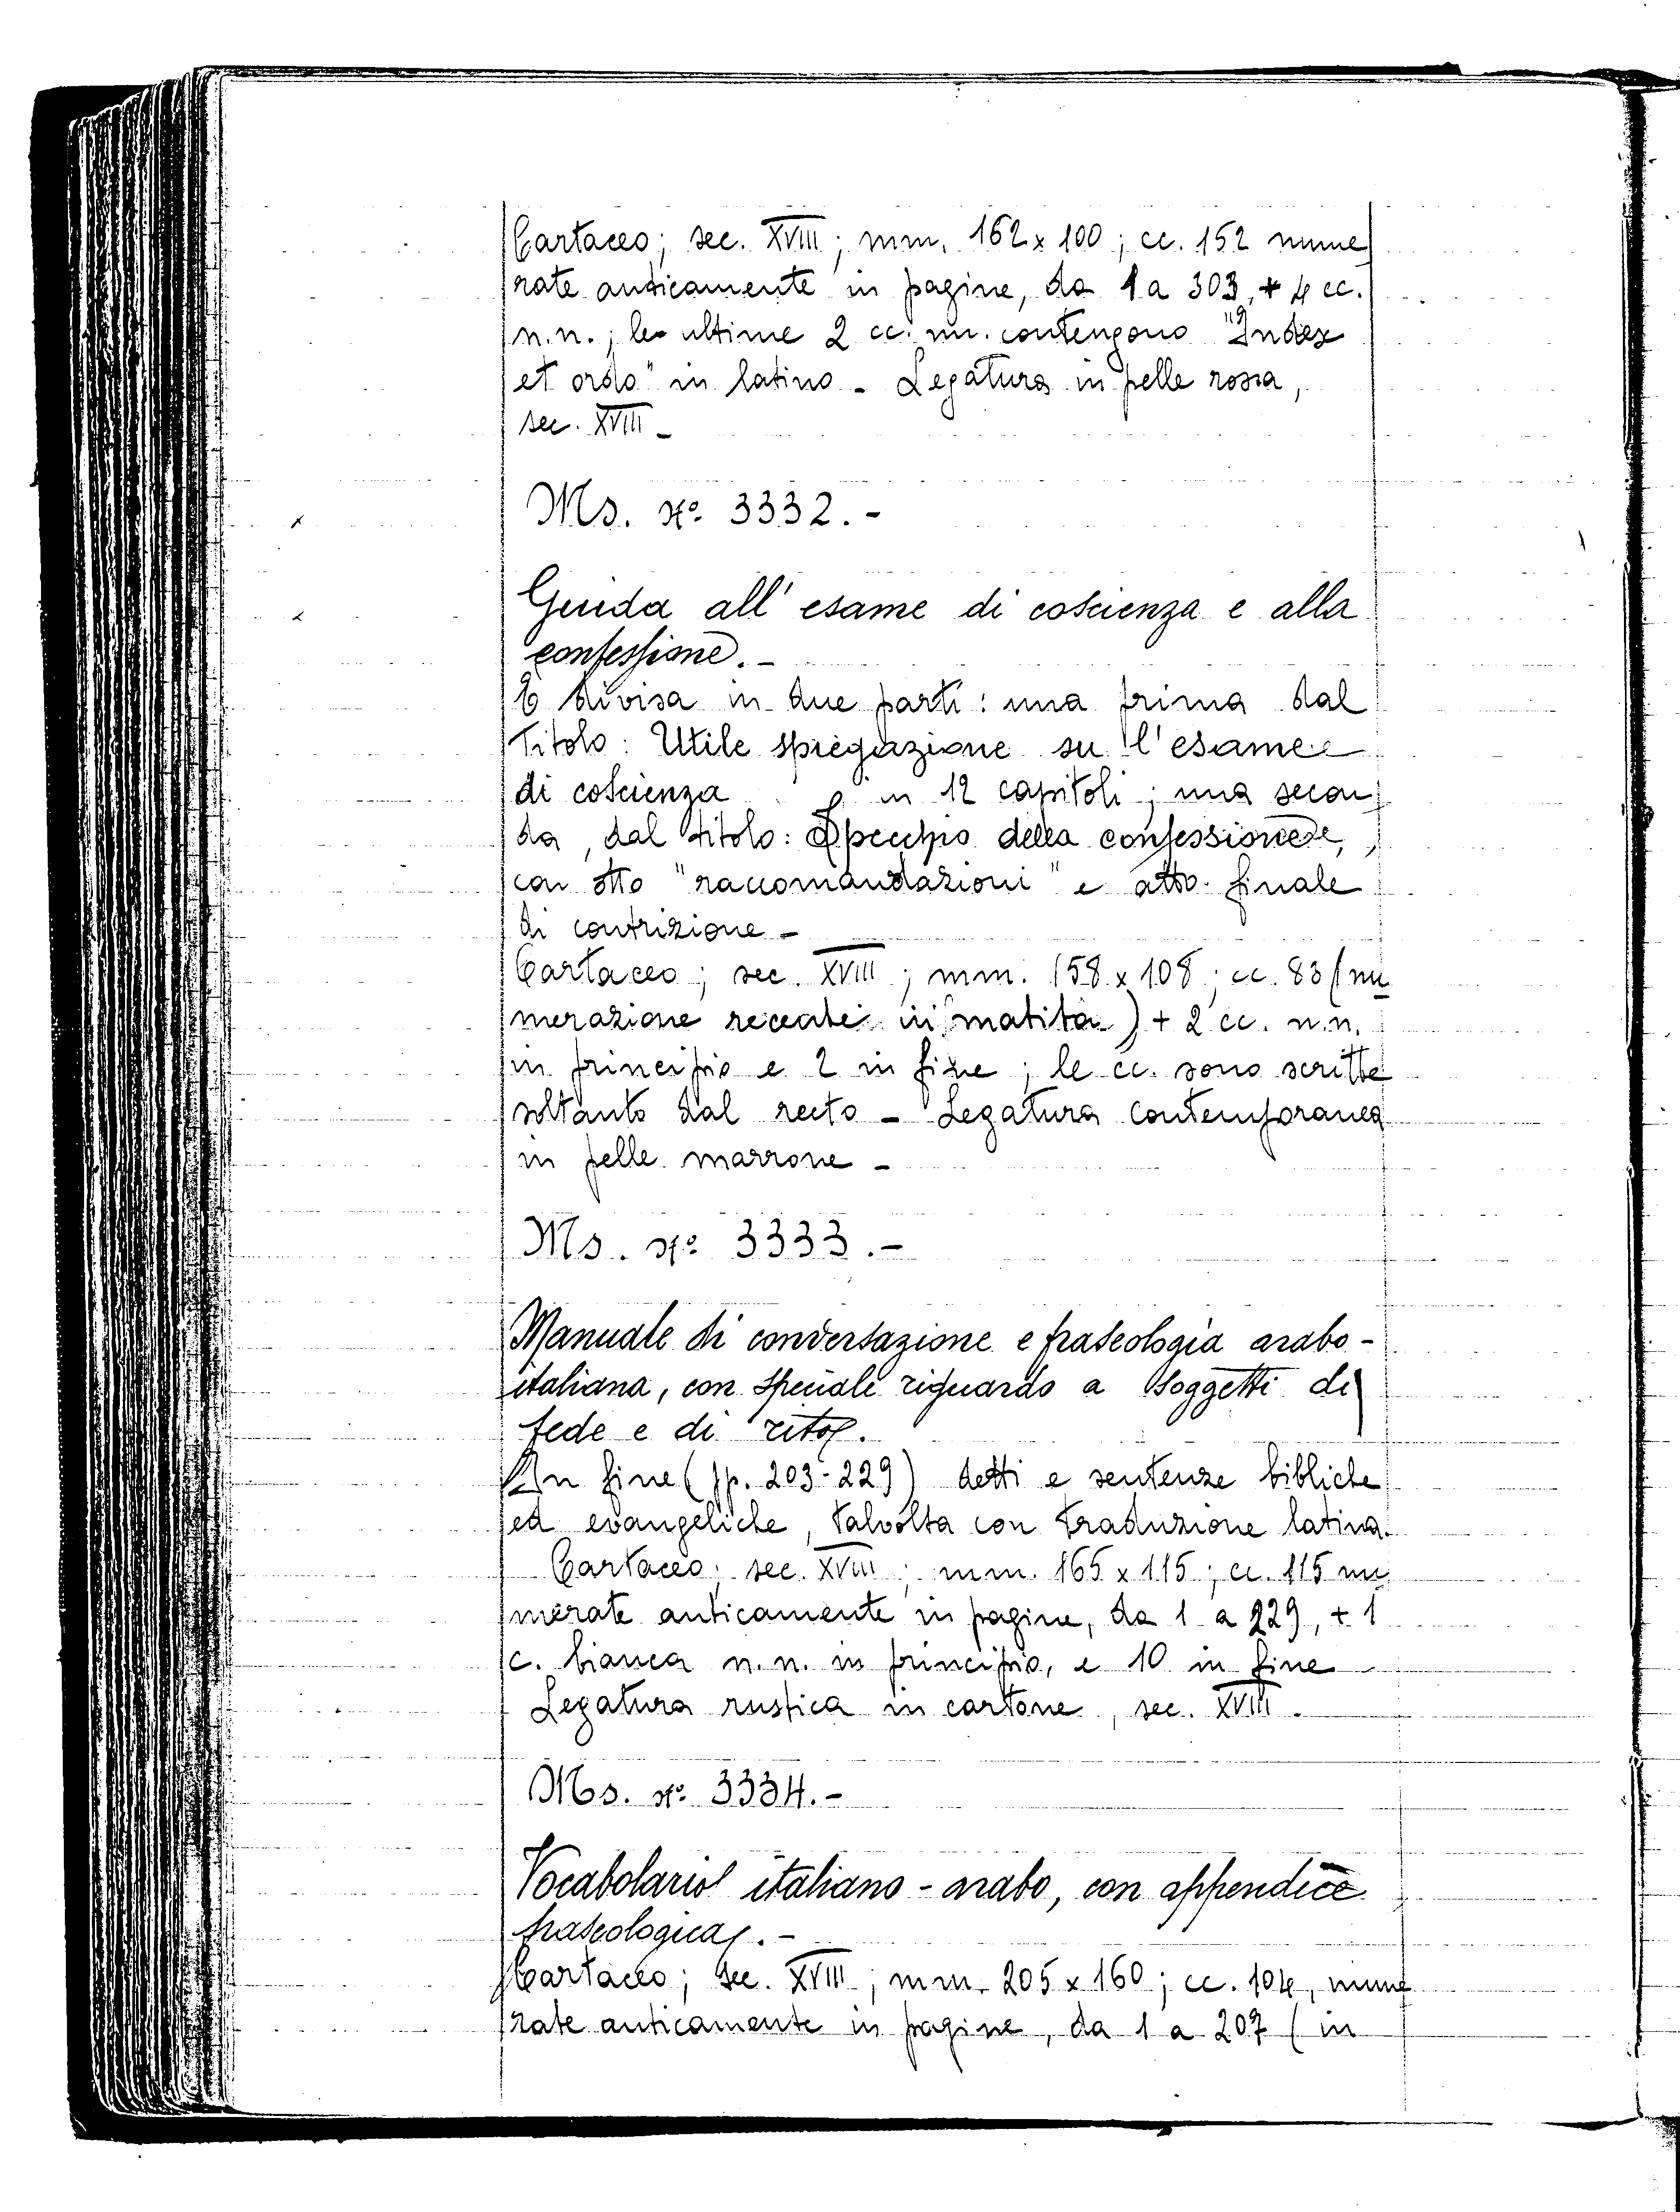 Cartaceo; sec. XVIII; mm. 162 x 100; cc. 152 nume
rate anticamente in pagine, da 1 a 303, + 4 cc.
n.n.; le ultime 2 cc. nn. contengono "Index
et ordo" in latino - Legatura in pelle rossa,
sec. XVIII -
Ms. n° 3332.-
Guida all' esame di coscienza e alla
confessione.-
È divisa in due parti: una prima dal
titolo: Utile spiegazione su l'esame
di coscienza in 12 capitoli; una secon
da, dal titolo: Specchio della confessione,
con otto "raccomandazioni" e atto finale
di contrizione -
Cartaceo; sec. XVIII; mm. 158 x 108; cc. 83 (nu
merazione recente in matita) + 2 cc. n.n.
in principio e 2 in fine; le cc. sono scritte
soltanto dal recto - Legatura contemporanea
in pelle marrone -
Ms. n° 3333.-
Manuale di conversazione e fraseologia arabo-
italiana, con speciale riguardo a soggetti di
fede e di rito.
In fine (pp. 203-229) detti e sentenze bibliche
ed evangeliche, talvolta con traduzione latina.
Cartaceo; sec. XVIII; mm. 165 x 115; cc. 115 nu
merate anticamente in pagine, da 1 a 229, + 1
c. bianca n.n. in principio, e 10 in fine
Legatura rustica in cartone, sec. XVIII.
Ms. n° 3334.-
Vocabolario italiano-arabo, con appendice
fraseologica.-
Cartaceo; sec. XVIII; mm. 205 x 160; cc. 104, nume
rate anticamente in pagine, da 1 a 207 (in